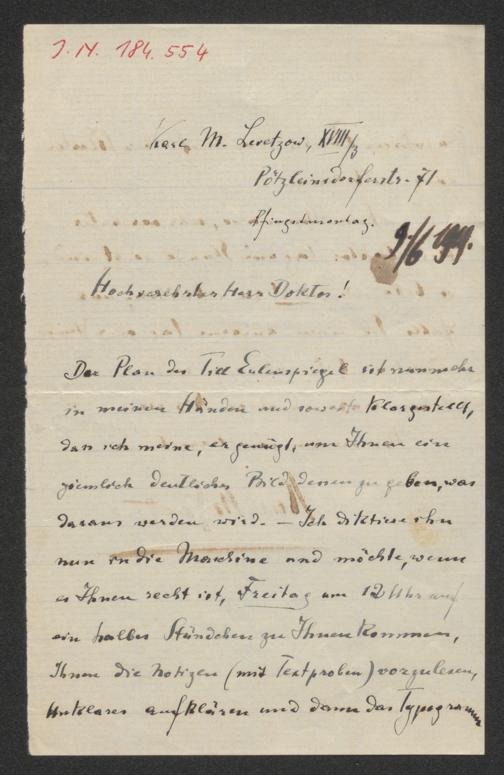 J. N. 184.554
Karl M. Levetzow, XVIII/3
Pötzleinsdorferstr. 71
Pfingstmontag.
9/6 1919.
Hochverehrter Herr Doktor!
Der Plan des Till Eulenspiegel ist nunmehr
in meinen Händen und soweit klargestellt,
dass ich meine, er genügt, um Ihnen ein
ziemlich deutliches Bild dessen zu geben, was
daraus werden wird. – Ich diktiere ihn
nun in die Maschine und möchte, wenn
es Ihnen recht ist, Freitag um 12 Uhr auf
ein halbes Stündchen zu Ihnen kommen,
Ihnen die Notizen (mit Textproben) vorzulesen,
Unklares aufklären und dann das Typogramm